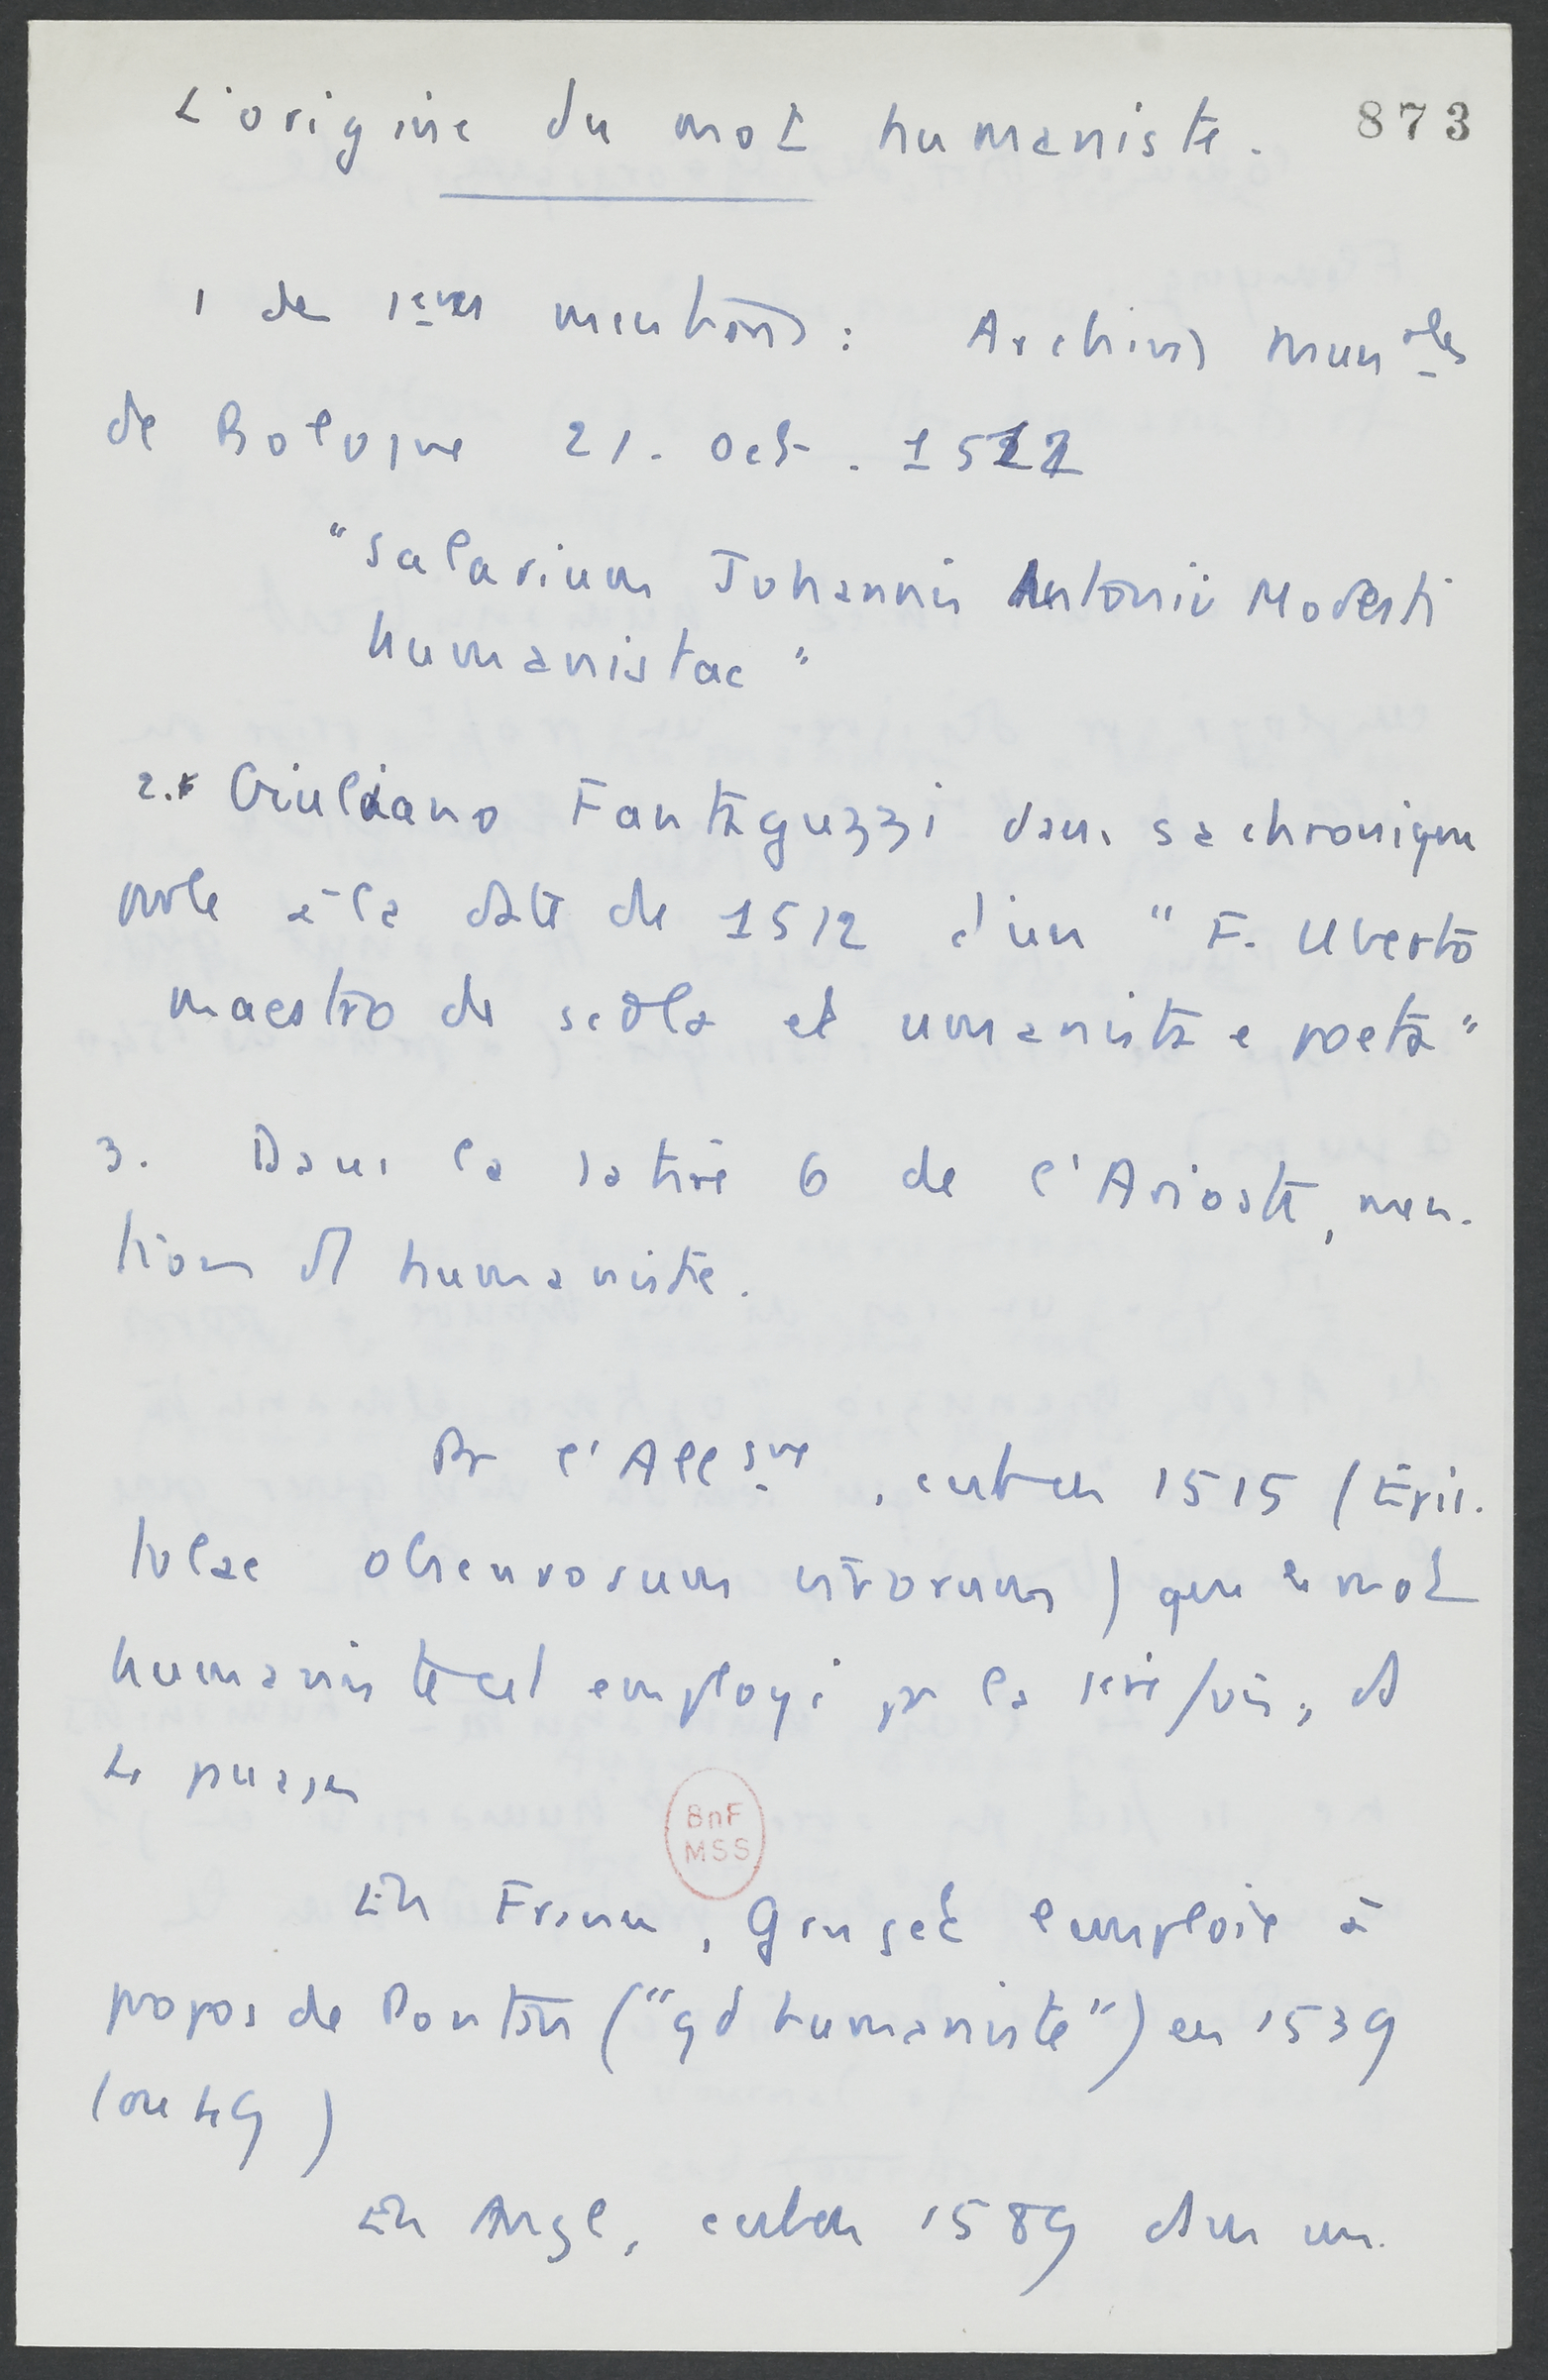 L'origine du mot humaniste. 873
1 des 1eres mentions : Archives munles
de Bologne 21. oct. 1512
"Salarium Johannis Antonii Modesti
humanistae"
2. Giuliano Fantaguzzi dans sa chronique
parle à la date de 1512 d'un "F. Uberto
maestro de scola et umanista e poeta"
3. Dans la satire 6 de l'Arioste, men-
tion de humaniste.
Pr l'Allgne, c'est en 1515 (Epis-
tolae obscurorum virorum) que le mot
humaniste est employé pr la 1ere fois,
BnF
MSS
En France, Gruget l'emploie à
propos de Pontan ("gd humaniste") en 1539
(ou 49)
En Angl, c'est en 1589 dans un